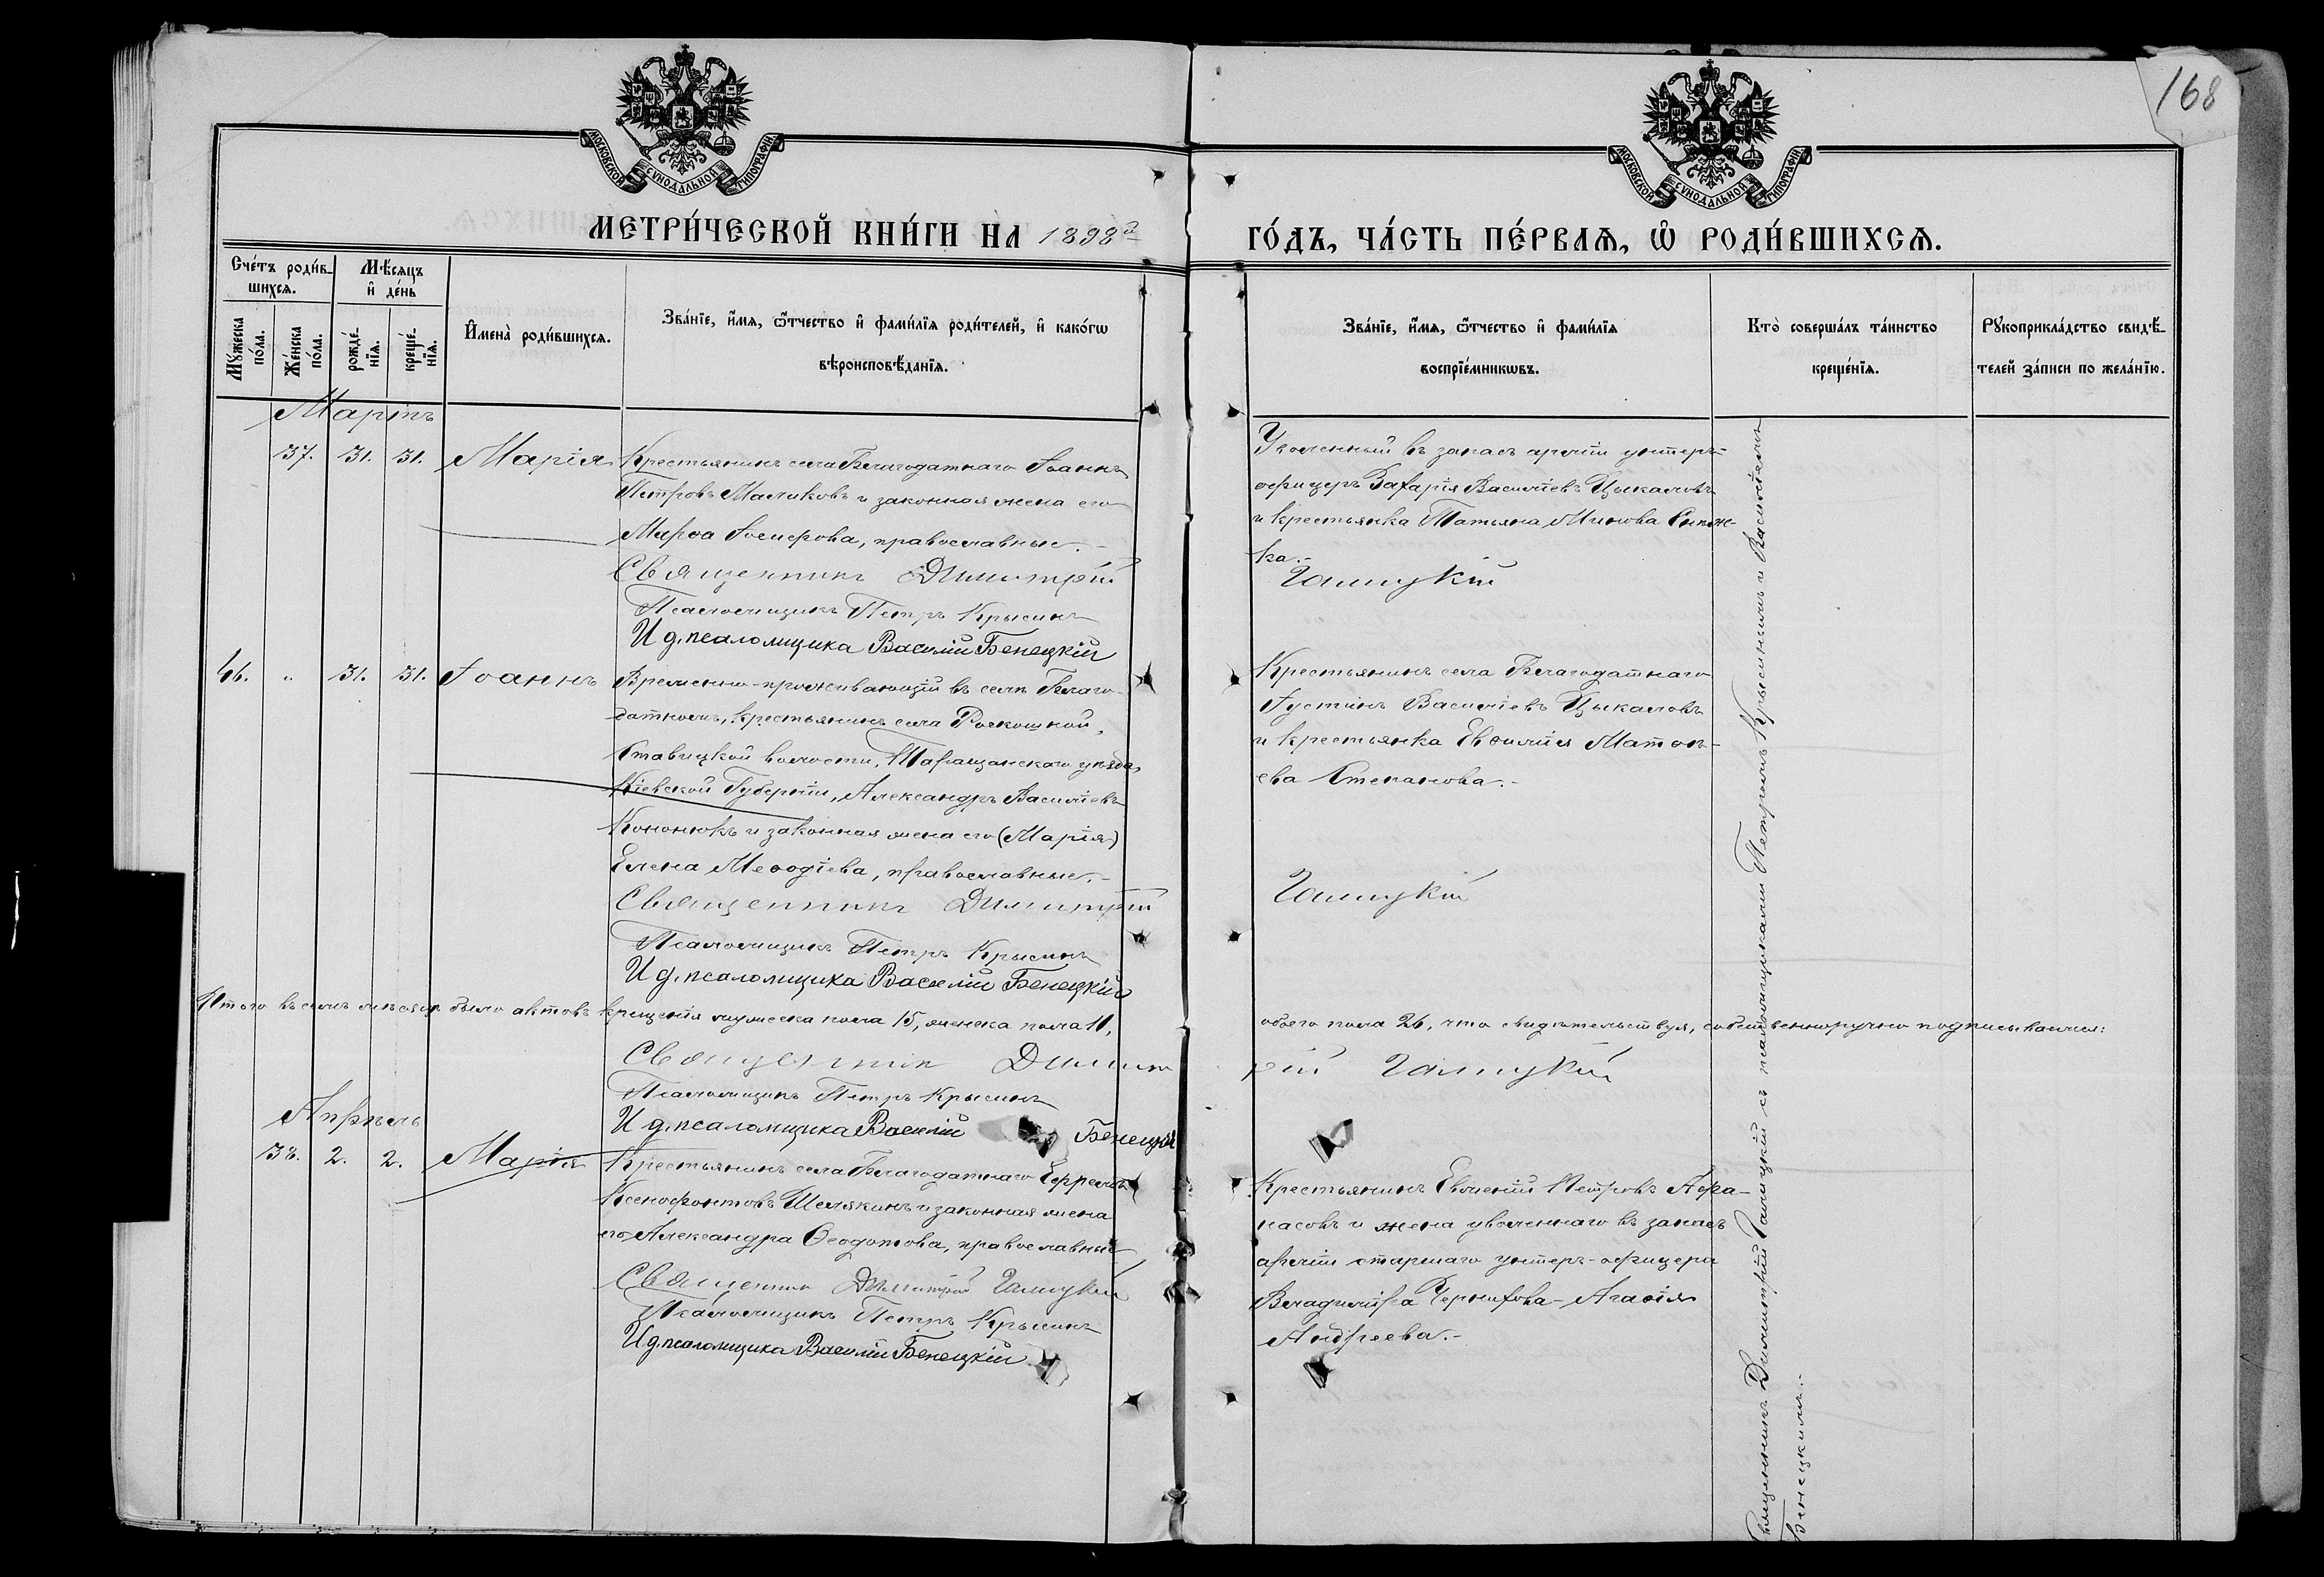 168
МОСКОВСКОЙ СУНОДАЛЬНОЙ ТИПОГРАФІИ
МОСКОВСКОЙ СУНОДАЛЬНОЙ ТИПОГРАФІИ
МЕТРИ́ЧЕСКОЙ КНИ́ГИ НА 1898й
ГО́ДЪ, ЧА́СТЬ ПЕ́РВАѦ, Ѽ РОДИ́ВШИХСѦ.
Сче́тъ роди́в-
шихсѧ.
Мѣ́сяцъ
и҆ де́нь
Мꙋ́жеска по́ла.
Же́нска по́ла.
рожде́-нїѧ.
креще́-нїѧ.
И҆мена̀ роди́вшихсѧ.
Зва́нїе, и҆́мѧ, ѻ҆́тчество и҆ фами́лїѧ роди́телей, и҆ како́гѡ
вѣроисповѣ́данїѧ.
Зва́нїе, и҆́мѧ, ѻ҆́тчество и҆ фами́лїѧ
воспрїе́мникѡвъ.
Кто̀ соверша́лъ та́инство
креще́нїѧ.
Рꙋкоприкла́дство свидѣ́-
телей за́писи по жела́нїю.
Мартъ
37. 31. 31. Марія
Крестьянинъ села Благодатнаго Іоаннъ
Петровъ Масликовъ и законная жена его
Марѳа Іосифова, православные.-
Священникъ Димитрій
Псаломщикъ Петръ Крысинъ
И д. псаломщика Василій Бенецкій
Уволенный въ запасъ арміи унтеръ-
офицеръ Захарія Васильевъ Цыкаловъ
и крестьянка Татьяна Минова
ка.-
Галицкій
46. " 31. 31. Іоаннъ
Временно-проживающій въ селѣ Благо-
датномъ, крестьянинъ села Роскошной,
Ставицкой волости, Таращанскаго уѣзда,
Кіевской Губерніи, Александръ Васильевъ
Кононюкъ и законная жена его (Марія)
Елена Меѳодіева, православные.-
Священникъ Димитрій
Псаломщикъ Петръ Крысинъ
И д. псаломщика Василій Бенецкій
Крестьянинъ села Благодатнаго
Іустинъ Васильевъ Цыкаловъ
и крестьянка Евѳимія Матвѣ-
ева Степанова.-
Галицкій
Итого въ семъ мѣсяцѣ было актовъ крещенія мужеска пола 15, женска пола 11,
обоего пола 26, что свидѣтельствуя, собственноручно подписываемся:
Священникъ Димит
рій Галицкій
Псаломщикъ Петръ Крысинъ
И д. псаломщика Василій Бенецкій
Апрѣль
38. 2. 2. Марія
Крестьянинъ села Благодатнаго Ефремъ
Ксенофонтовъ Шелякинъ и законная жена
его Александра Ѳеодотова, православные
Священникъ Димитрій Галицкій
Псаломщикъ Петръ Крысинъ
И д. псаломщика Василій Бенецкій
Крестьянинъ Евгеній Петровъ Афа-
насовъ и жена уволеннаго въ запасъ
арміи старшаго унтеръ-офицера
Владиміра Чернихова - Агаѳія
Андреева.-
Священникъ Димитрій Галицкій съ псаломщиками Петромъ Крысинымъ и Василіемъ
Бенецкимъ.-